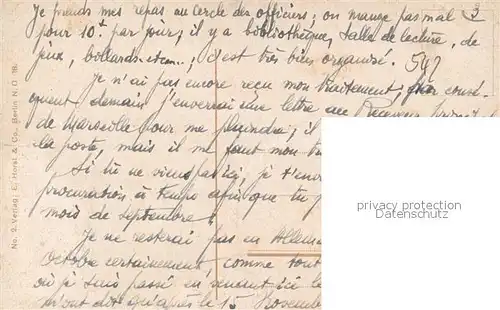 Je prends mes repas au cercle des officiers; on mange pas mal 3
pour 10f par jour; il y a bibliothèque, salle de lecture, de
jeux, billards etc...; c'est très bien organisé. 542
Je n'ai pas encore reçu mon traitement; par consé-
quent demain j'enverrai une lettre au Receveur
de Marseille pour me plaindre; il
la poste, mais il me faut mon
Si tu ne viens pas ici, je
procuration à temps afin que tu
mois de septembre!
Je ne resterai pas en
Octobre certainement, comme tout
où je suis passé en venant ici le
m'ont dit qu'après le 15 Novembre
No. 2. Verlag: E. Horst & Co., Berlin N.O. 18.
privacy protection
Datenschutz